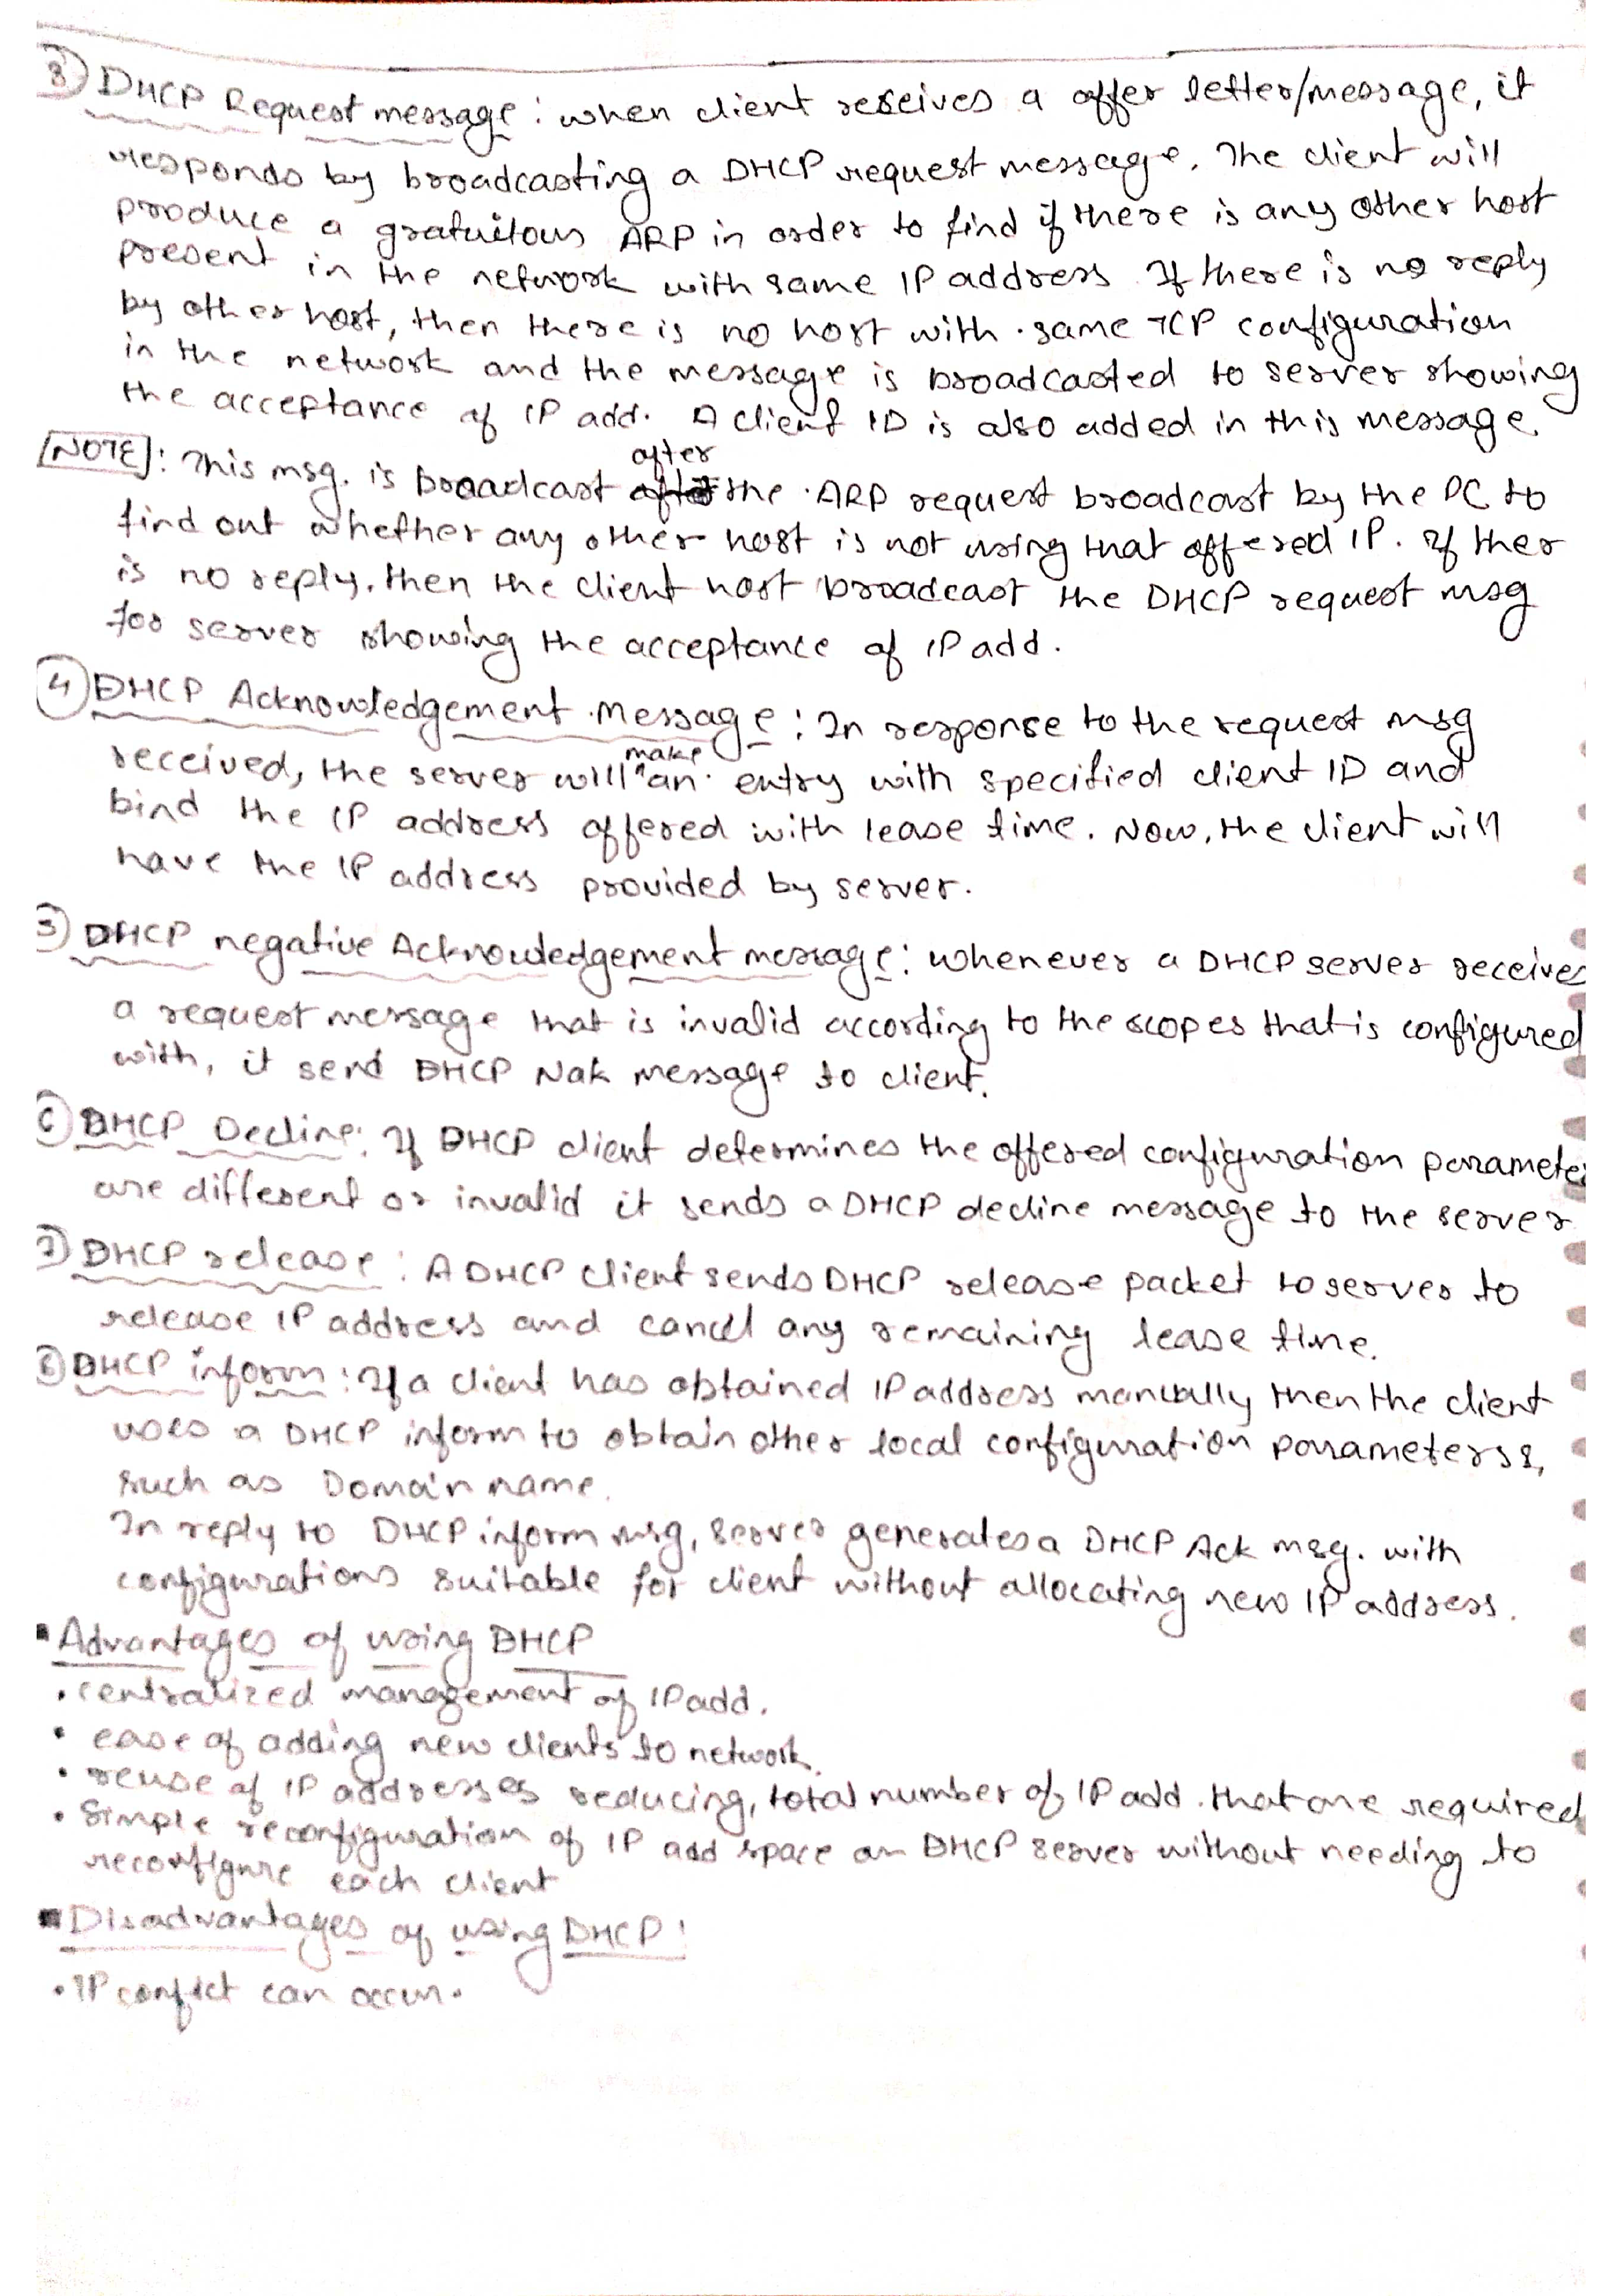 ③ DHCP Request message : when client receives a offer letter/message, it
responds by broadcasting a DHCP request message. The client will
produce a gratuitous ARP in order to find if there is any other host
present in the network with same IP address If there is no reply
by other host, then there is no host with same TCP configuration
in the network and the message is broadcasted to server showing
the acceptance of IP add. A client ID is also added in this message.
after
[NOTE]: This msg. is broadcast the ARP request broadcast by the PC to
find out whether any other host is not using that offered IP. If ther
is no reply, then the client host broadcast the DHCP request msg
for server showing the acceptance of IP add.
④ DHCP Acknowledgement Message : In response to the request msg
make
received, the server will an entry with specified client ID and
bind the IP address offered with lease time. Now, the client will
have the IP address provided by server.
⑤ DHCP negative Acknowledgement message : whenever a DHCP server receives
a request message that is invalid according to the scopes that is configured
with, it send DHCP Nak message to client.
⑥ DHCP Decline : If DHCP client determines the offered configuration paramete
are different or invalid it sends a DHCP decline message to the server
⑦ DHCP release : A DHCP client sends DHCP release packet to server to
release IP address and cancel any remaining lease time.
⑧ DHCP inform : If a client has obtained IP address manually then the client
uses a DHCP inform to obtain other local configuration parameters,
such as Domain name.
In reply to DHCP inform msg, server generates a DHCP Ack msg. with
configurations suitable for client without allocating new IP address.
▪ Advantages of using DHCP
• centralized management of IP add.
• ease of adding new clients to network.
• reuse of IP addresses reducing, total number of IP add. that are required
• Simple reconfiguration of IP add space on DHCP server without needing to
reconfigure each client
▪ Disadvantages of using DHCP :
• IP confict can occur.